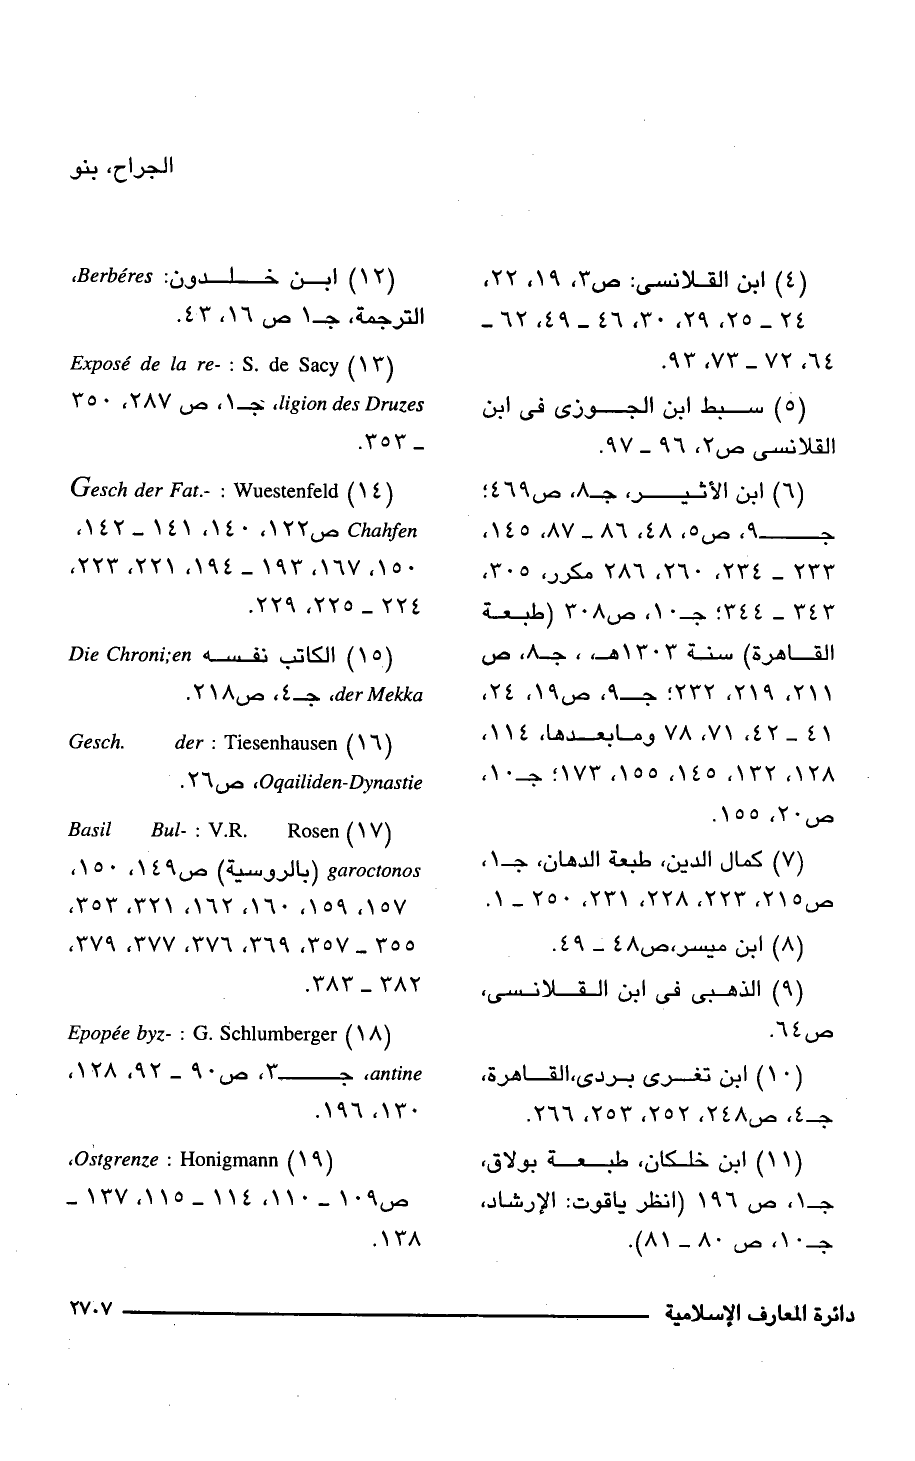 الجراح، بنو
(٤) ابن القلانسى: ص٣، ١٩، ٢٢،
٢٤ ــ ٢٥، ٢٩، ٣٠، ٤٦ ــ ٤٩، ٦٢ ــ
٦٤، ٧٢ ــ ٧٣، ٩٣.
(٥) سبط ابن الجوزى فى ابن
القلانسى ص٢، ٩٦ ــ ٩٧.
(٦) ابن الأثير، جـ٨، ص٤٦٩؛
جـ٩، ص٥، ٤٨، ٨٦ ــ ٨٧، ١٤٥،
٢٣٣ ــ ٢٣٤، ٢٦٠، ٢٨٦ مكرر، ٣٠٥،
٣٤٣ ــ ٣٤٤؛ جـ١٠، ص٣٠٨ (طبعة
القاهرة) سنة ١٣٠٣هـ، ، جـ٨، ص
٢١١، ٢١٩، ٢٣٢؛ جـ٩، ص١٩، ٢٤،
٤١ ــ ٤٢، ٧١، ٧٨ ومابعدها، ١١٤،
١٢٨، ١٣٢، ١٤٥، ١٥٥، ١٧٣؛ جـ١٠،
ص٢٠، ١٥٥.
(٧) كمال الدين، طبعة الدهان، جـ١،
ص٢١٥، ٢٢٣، ٢٢٨، ٢٣١، ٢٥٠ ــ ١.
(٨) ابن ميسر،ص٤٨ ــ ٤٩.
(٩) الذهبى فى ابن القلانسى،
ص٦٤.
(١٠) ابن تغرى بردى،القاهرة،
جـ٤، ص٢٤٨، ٢٥٢، ٢٥٣، ٢٦٦.
(١١) ابن خلكان، طبعة بولاق،
جـ١، ص ١٩٦ (انظر ياقوت: الإرشاد،
جـ١٠، ص ٨٠ ــ ٨١).
(١٢) ابن خلدون: Berbéres،
الترجمة، جـ١ ص ١٦، ٤٣.
(١٣) Exposé de la re- : S. de Sacy
ligion des Druzes، جـ١، ص ٢٨٧، ٣٥٠
ــ ٣٥٣.
(١٤) Gesch der Fat.- : Wuestenfeld
Chahfen ص١٢٢، ١٤٠، ١٤١ ــ ١٤٢،
١٥٠، ١٦٧، ١٩٣ ــ ١٩٤، ٢٢١، ٢٢٣،
٢٢٤ ــ ٢٢٥، ٢٢٩.
(١٥) الكاتب نفسه Die Chroni;en
der Mekka، جـ٤، ص٢١٨.
(١٦) Gesch. der : Tiesenhausen
Oqailiden-Dynastie، ص٢٦.
(١٧) Basil Bul- : V.R. Rosen
garoctonos (بالروسية) ص١٤٩، ١٥٠،
١٥٧، ١٥٩، ١٦٠، ١٦٢، ٣٢١، ٣٥٣،
٣٥٥ ــ ٣٥٧، ٣٦٩، ٣٧٦، ٣٧٧، ٣٧٩،
٣٨٢ ــ ٣٨٣.
(١٨) Epopée byz- : G. Schlumberger
antine، جـ٣، ص٩٠ ــ ٩٢، ١٢٨،
١٣٠، ١٩٦.
(١٩) Ostgrenze : Honigmann،
ص١٠٩ ــ ١١٠، ١١٤ ــ ١١٥، ١٣٧ ــ
١٣٨.
دائرة المعارف الإسلامية ٢٧٠٧